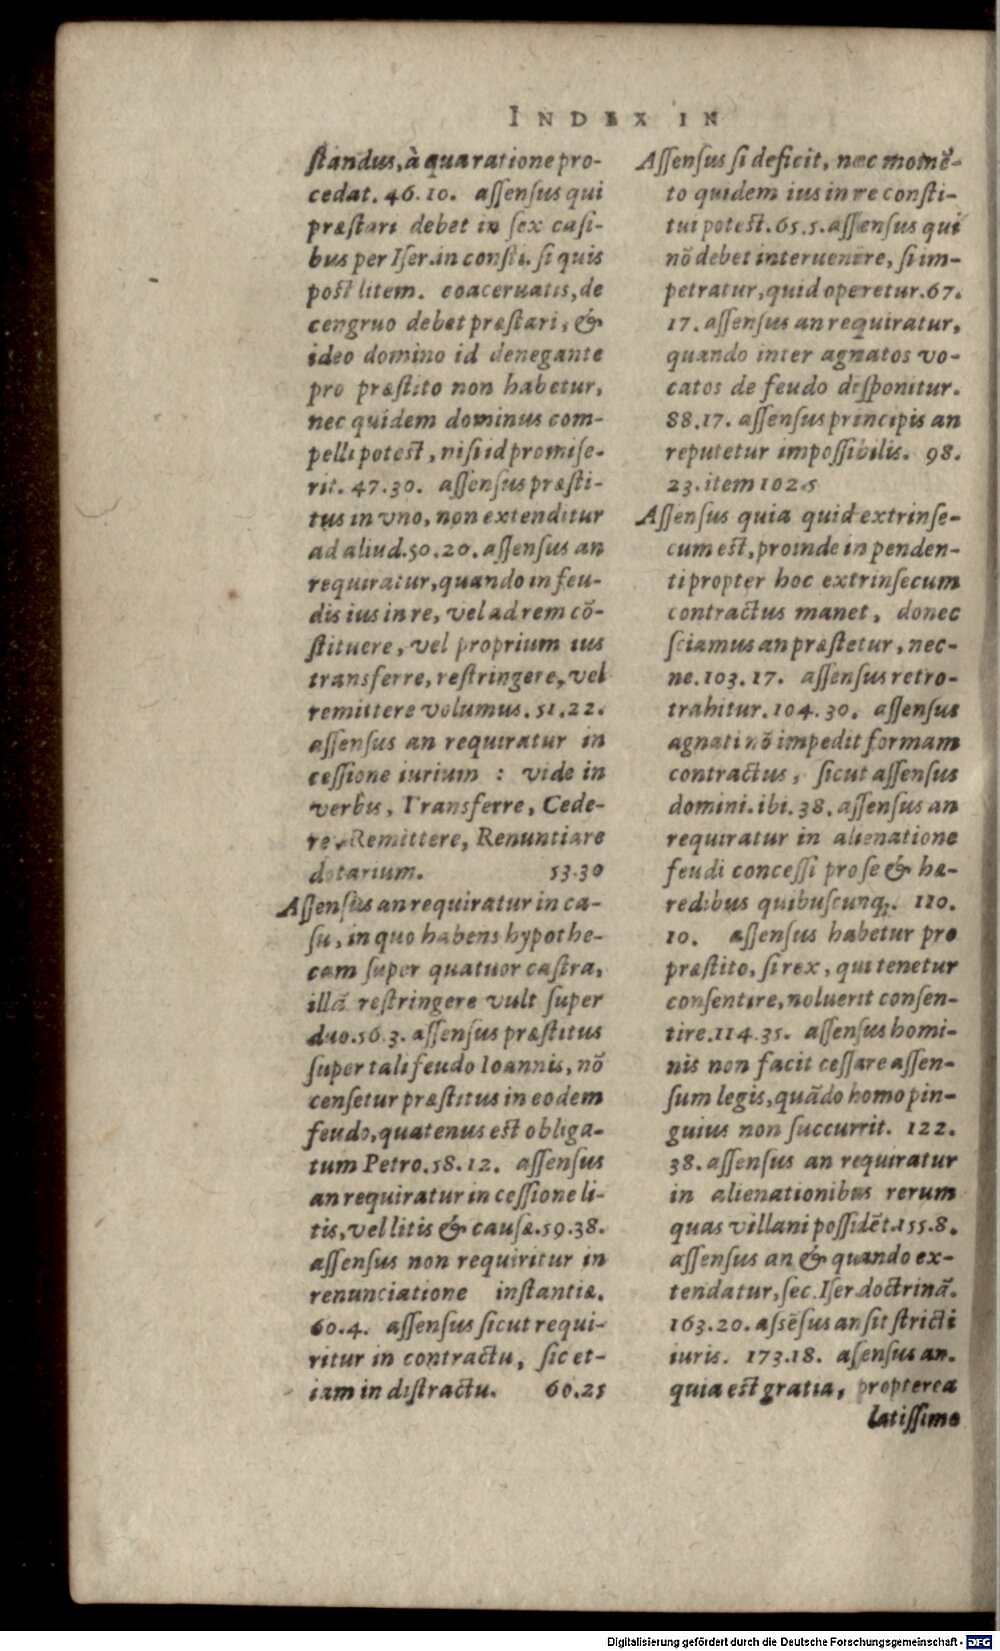 INDEX IN
ſtandus, à qua ratione pro-
cedat. 46.10. aſſenſus qui
præſtari debet in ſex caſi-
bus per Iſer. in conſti. ſi quis
poſt litem. coaceruatis, de
congruo debet præſtari, &
ideo domino id denegante
pro præſtito non habetur,
nec quidem dominus com-
pelli poteſt, niſi id promiſe-
rit. 47.30. aſſenſus præſti-
tus in vno, non extenditur
ad aliud. 50.20. aſſenſus an
requiratur, quando in feu-
dis ius in re, vel ad rem cō-
ſtituere, vel proprium ius
transferre, reſtringere, vel
remittere volumus. 51.22.
aſſenſus an requiratur in
ceſſione iurium : vide in
verbis, Transferre, Cede-
re, Remittere, Renuntiare
dotarium. 53.30
Aſſenſus an requiratur in ca-
ſu, in quo habens hypothe-
cam ſuper quatuor caſtra,
illā reſtringere vult ſuper
duo. 56.3. aſſenſus præſtitus
ſuper tali feudo Ioannis, nō
cenſetur præſtitus in eodem
feudo, quatenus eſt obliga-
tum Petro. 58.12. aſſenſus
an requiratur in ceſſione li-
tis, vel litis & cauſæ. 59.38.
aſſenſus non requiritur in
renunciatione inſtantiæ.
60.4. aſſenſus ſicut requi-
ritur in contractu, ſic et-
iam in diſtractu. 60.25
Aſſenſus ſi deficit, nec momē-
to quidem ius in re conſti-
tui poteſt. 65.5. aſſenſus qui
nō debet interuenire, ſi im-
petratur, quid operetur. 67.
17. aſſenſus an requiratur,
quando inter agnatos vo-
catos de feudo diſponitur.
88.17. aſſenſus principis an
reputetur impoſſibilis. 98.
23. item 102.5
Aſſenſus quia quid extrinſe-
cum eſt, proinde in penden-
ti propter hoc extrinſecum
contractus manet, donec
ſciamus an præſtetur, nec-
ne. 103.17. aſſenſus retro-
trahitur. 104.30. aſſenſus
agnati nō impedit formam
contractus, ſicut aſſenſus
domini. ibi. 38. aſſenſus an
requiratur in alienatione
feudi conceſſi pro ſe & hæ-
redibus quibuſcunq;. 110.
10. aſſenſus habetur pro
præſtito, ſi rex, qui tenetur
conſentire, noluerit conſen-
tire. 114.35. aſſenſus homi-
nis non facit ceſſare aſſen-
ſum legis, quādo homo pin-
guius non ſuccurrit. 122.
38. aſſenſus an requiratur
in alienationibus rerum
quas villani poſſidēt. 155.8.
aſſenſus an & quando ex-
tendatur, ſec. Iſer. doctrinā.
163.20. aſsēſus an ſit ſtricti
iuris. 173.18. aſenſus an.
quia eſt gratia, propterea
latiſſime
Digitalisierung gefördert durch die Deutsche Forschungsgemeinschaft - DFG